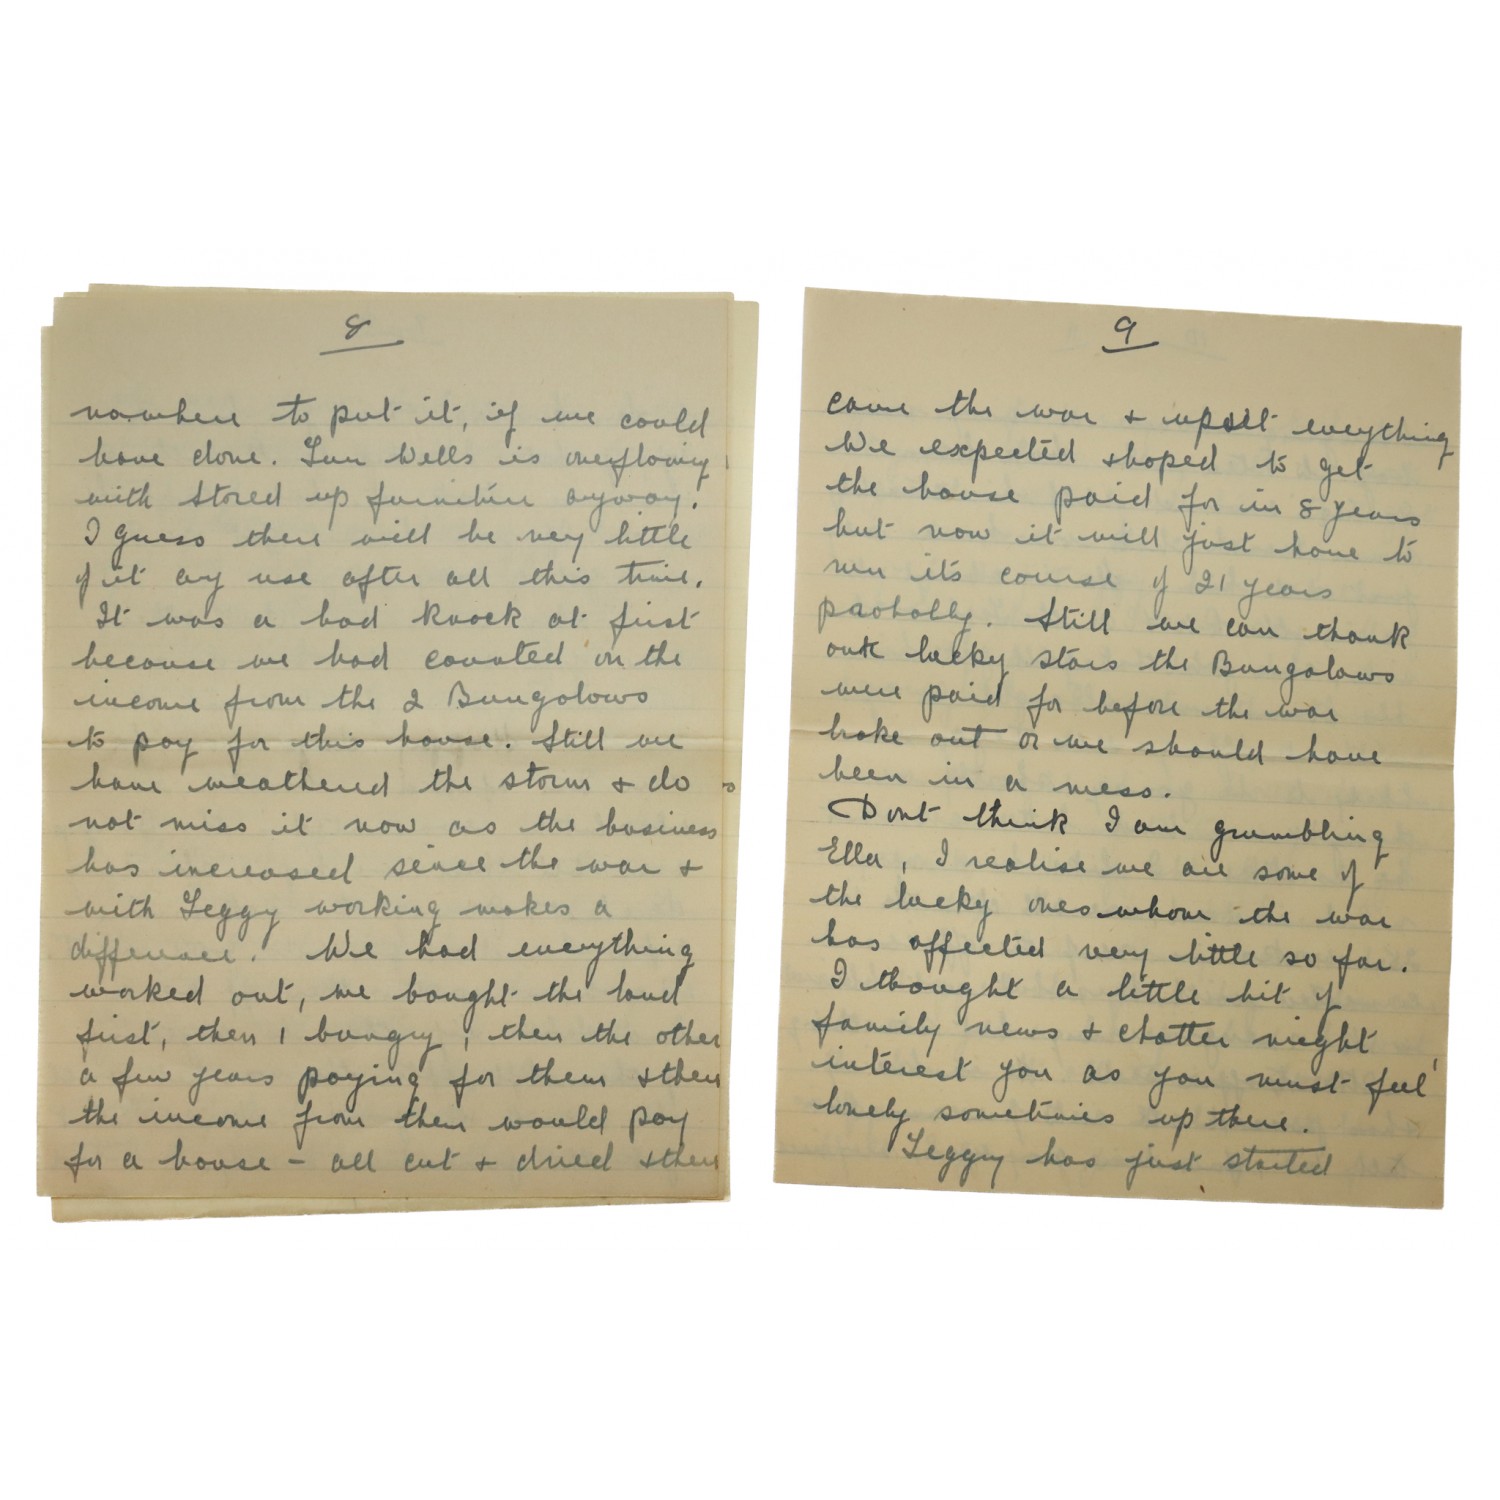 8
nowhere to put it, if we could
have done. Tun Wells is overflowing
with stored up furniture anyway.
I guess there will be very little
of it any use after all this time.
It was a bad knock at first
because we had counted on the
income from the 2 Bungalows
to pay for this house. Still we
have weathered the storm & do
not miss it now as the business
has increased since the war &
with Leggy working makes a
difference. We had everything
worked out, we bought the land
first, then 1 bungy, then the other
a few years paying for them & then
the income from them would pay
for a house – all cut & dried & then
9
came the war & upset everything
We expected & hoped to get
the house paid for in 8 years
but now it will just have to
run it's course of 21 years
probably. Still we can thank
our lucky stars the Bungalows
were paid for before the war
broke out or we should have
been in a mess.
Dont think I am grumbling
Ella, I realise we are some of
the lucky ones whom the war
has affected very little so far.
I thought a little bit of
family news & chatter might
interest you as you must feel
lonely sometimes up there.
Leggy has just started